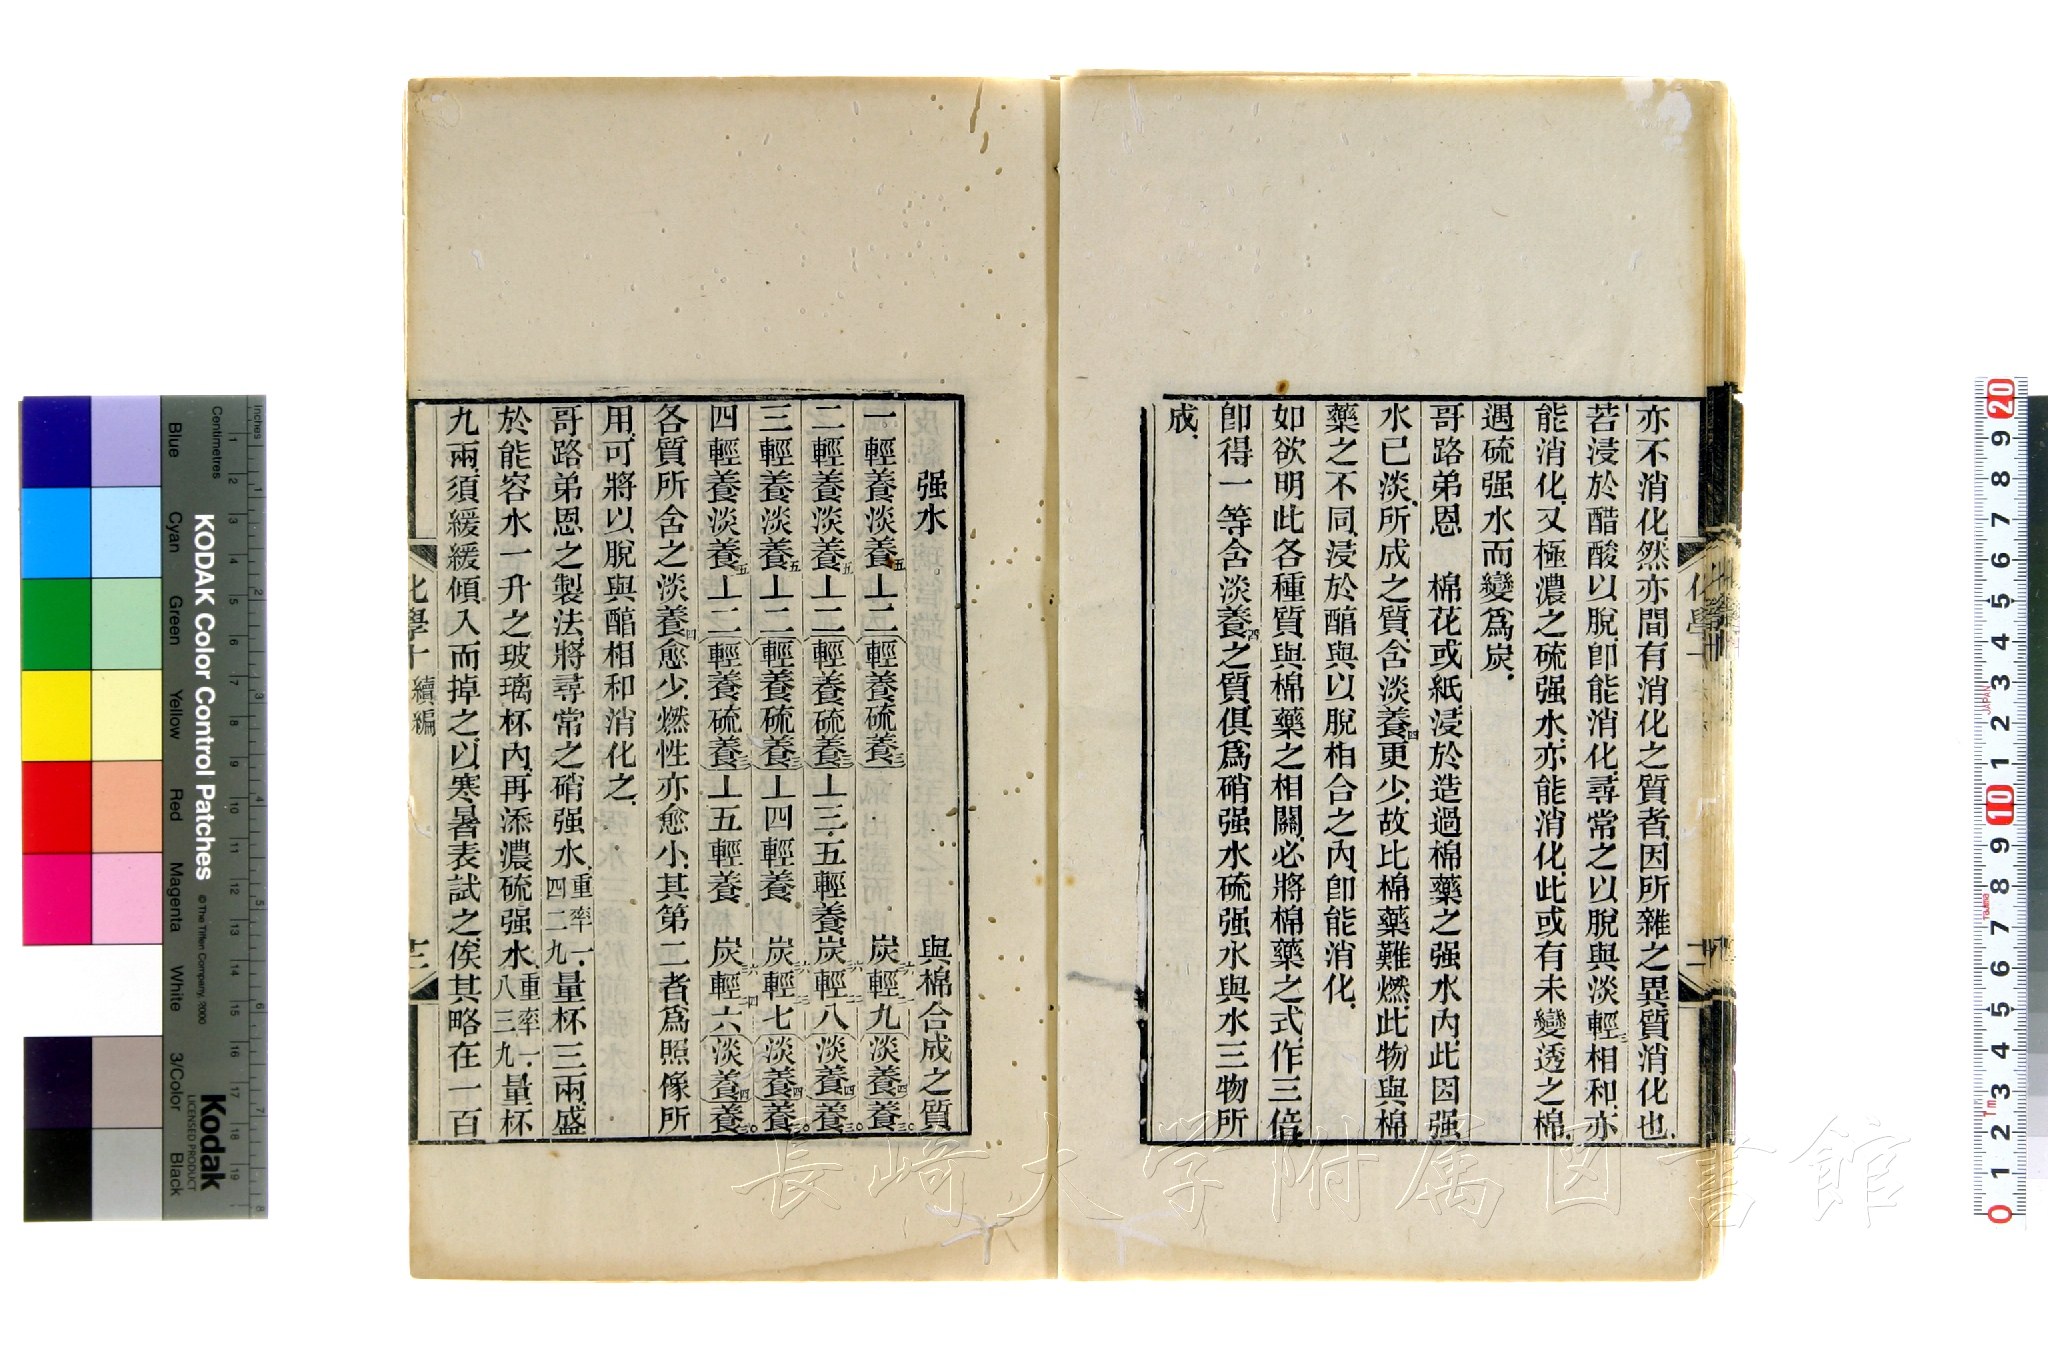 亦不消化、然亦間有消化之質者、因所雜之異質消化也、
若浸於醋酸以脫、卽能消化、尋常之以脫與淡輕三相和、亦
能消化、又極濃之硫强水、亦能消化、此或有未變透之棉、
遇硫强水而變爲炭、
哥路弟恩　棉花或紙、浸於造過棉藥之强水內、此因强
水已淡、所成之質、含淡養四更少、故比棉藥難燃、此物與棉
藥之不同、浸於醕與以脫相合之內、卽能消化、
如欲明此各種質與棉藥之相關、必將棉藥之式、作三倍
卽得一等含淡養四之質、俱爲硝强水硫强水與水三物所
成、
化學
强水　與棉合成之質
一輕養淡養五⊥二(輕養硫養三)　炭三六輕九(淡養四)養三〇
二輕養淡養五⊥二(輕養硫養三)⊥三、五輕養炭三六輕八(淡養四)養三〇
三輕養淡養五⊥二(輕養硫養三)⊥四輕養　炭三六輕七(淡養四)養三〇
四輕養淡養五⊥二(輕養硫養三)⊥五輕養　炭三六輕六(淡養四)養三〇
各質所含之淡養四愈少、燃性亦愈小、其第二者爲照像所
用、可將以脫與醕相和消化之、
哥路弟恩之製法、將尋常之硝强水、重率一、四二九、量杯三兩、盛
於能容水一升之玻璃杯內、再添濃硫强水、重率一、八三九、量杯
九兩、須緩緩傾入而掉之、以寒暑表試之、俟其略在一百
化學十 續編
KODAK Color Control Patches
© The Tiffen Company, 2000
Kodak
LICENSED PRODUCT
Centimetres
Inches
Blue
Cyan
Green
Yellow
Red
Magenta
White
3/Color
Black
長崎大学附属図書館